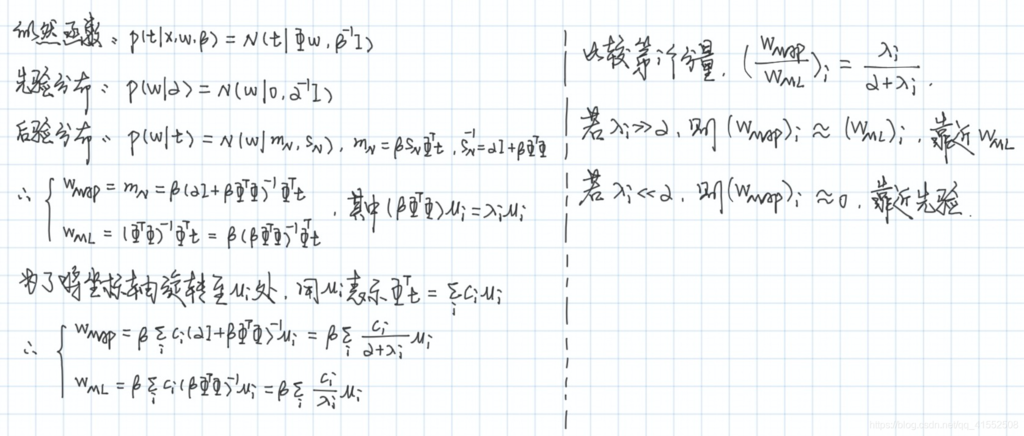 似然函数: p(t|x,w,β) = N(t|Φw, β⁻¹I)
先验分布: p(w|α) = N(w|0, α⁻¹I)
后验分布: p(w|t) = N(w|m_N, S_N), m_N = βS_NΦᵀt, S_N⁻¹ = αI + βΦᵀΦ
∴ { w_MAP = m_N = β(αI + βΦᵀΦ)⁻¹Φᵀt
w_ML = (ΦᵀΦ)⁻¹Φᵀt = β(βΦᵀΦ)⁻¹Φᵀt , 其中(βΦᵀΦ)u_i = λ_i u_i
为了将坐标轴旋转至u_i处, 用u_i表示Φᵀt = Σ_i c_i u_i
∴ { w_MAP = β Σ_i c_i(αI + βΦᵀΦ)⁻¹u_i = β Σ_i c_i/(α+λ_i) u_i
w_ML = β Σ_i c_i(βΦᵀΦ)⁻¹u_i = β Σ_i c_i/λ_i u_i
比较第i个分量, (w_MAP/w_ML)_i = λ_i/(α+λ_i).
若λ_i≫α, 则(w_MAP)_i ≈ (w_ML)_i, 靠近w_ML
若λ_i≪α, 则(w_MAP)_i ≈ 0, 靠近先验.